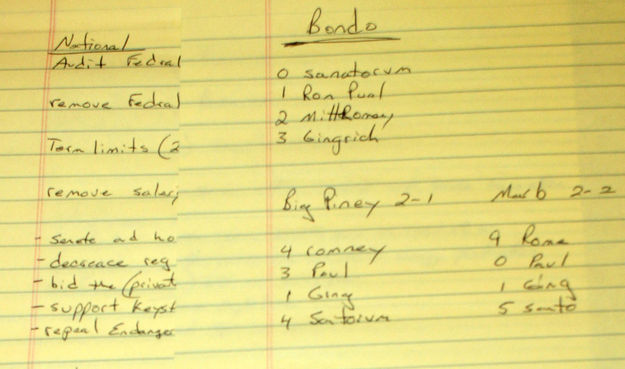 National
Audit Fedral
remove Fedral
Term limits (2
remove salary
- Senete ad ho
- decreace reg
- bid the (privat
- support Keyst
- repeal Endange
Bondo
0 sanatorum
1 Ron Pual
2 Mitt Romey
3 Gingrich
Big Piney 2-1
4 romney
3 Paul
1 Ging
4 Santorum
Marb 2-2
9 Rome
0 Paul
1 Ging
5 santo